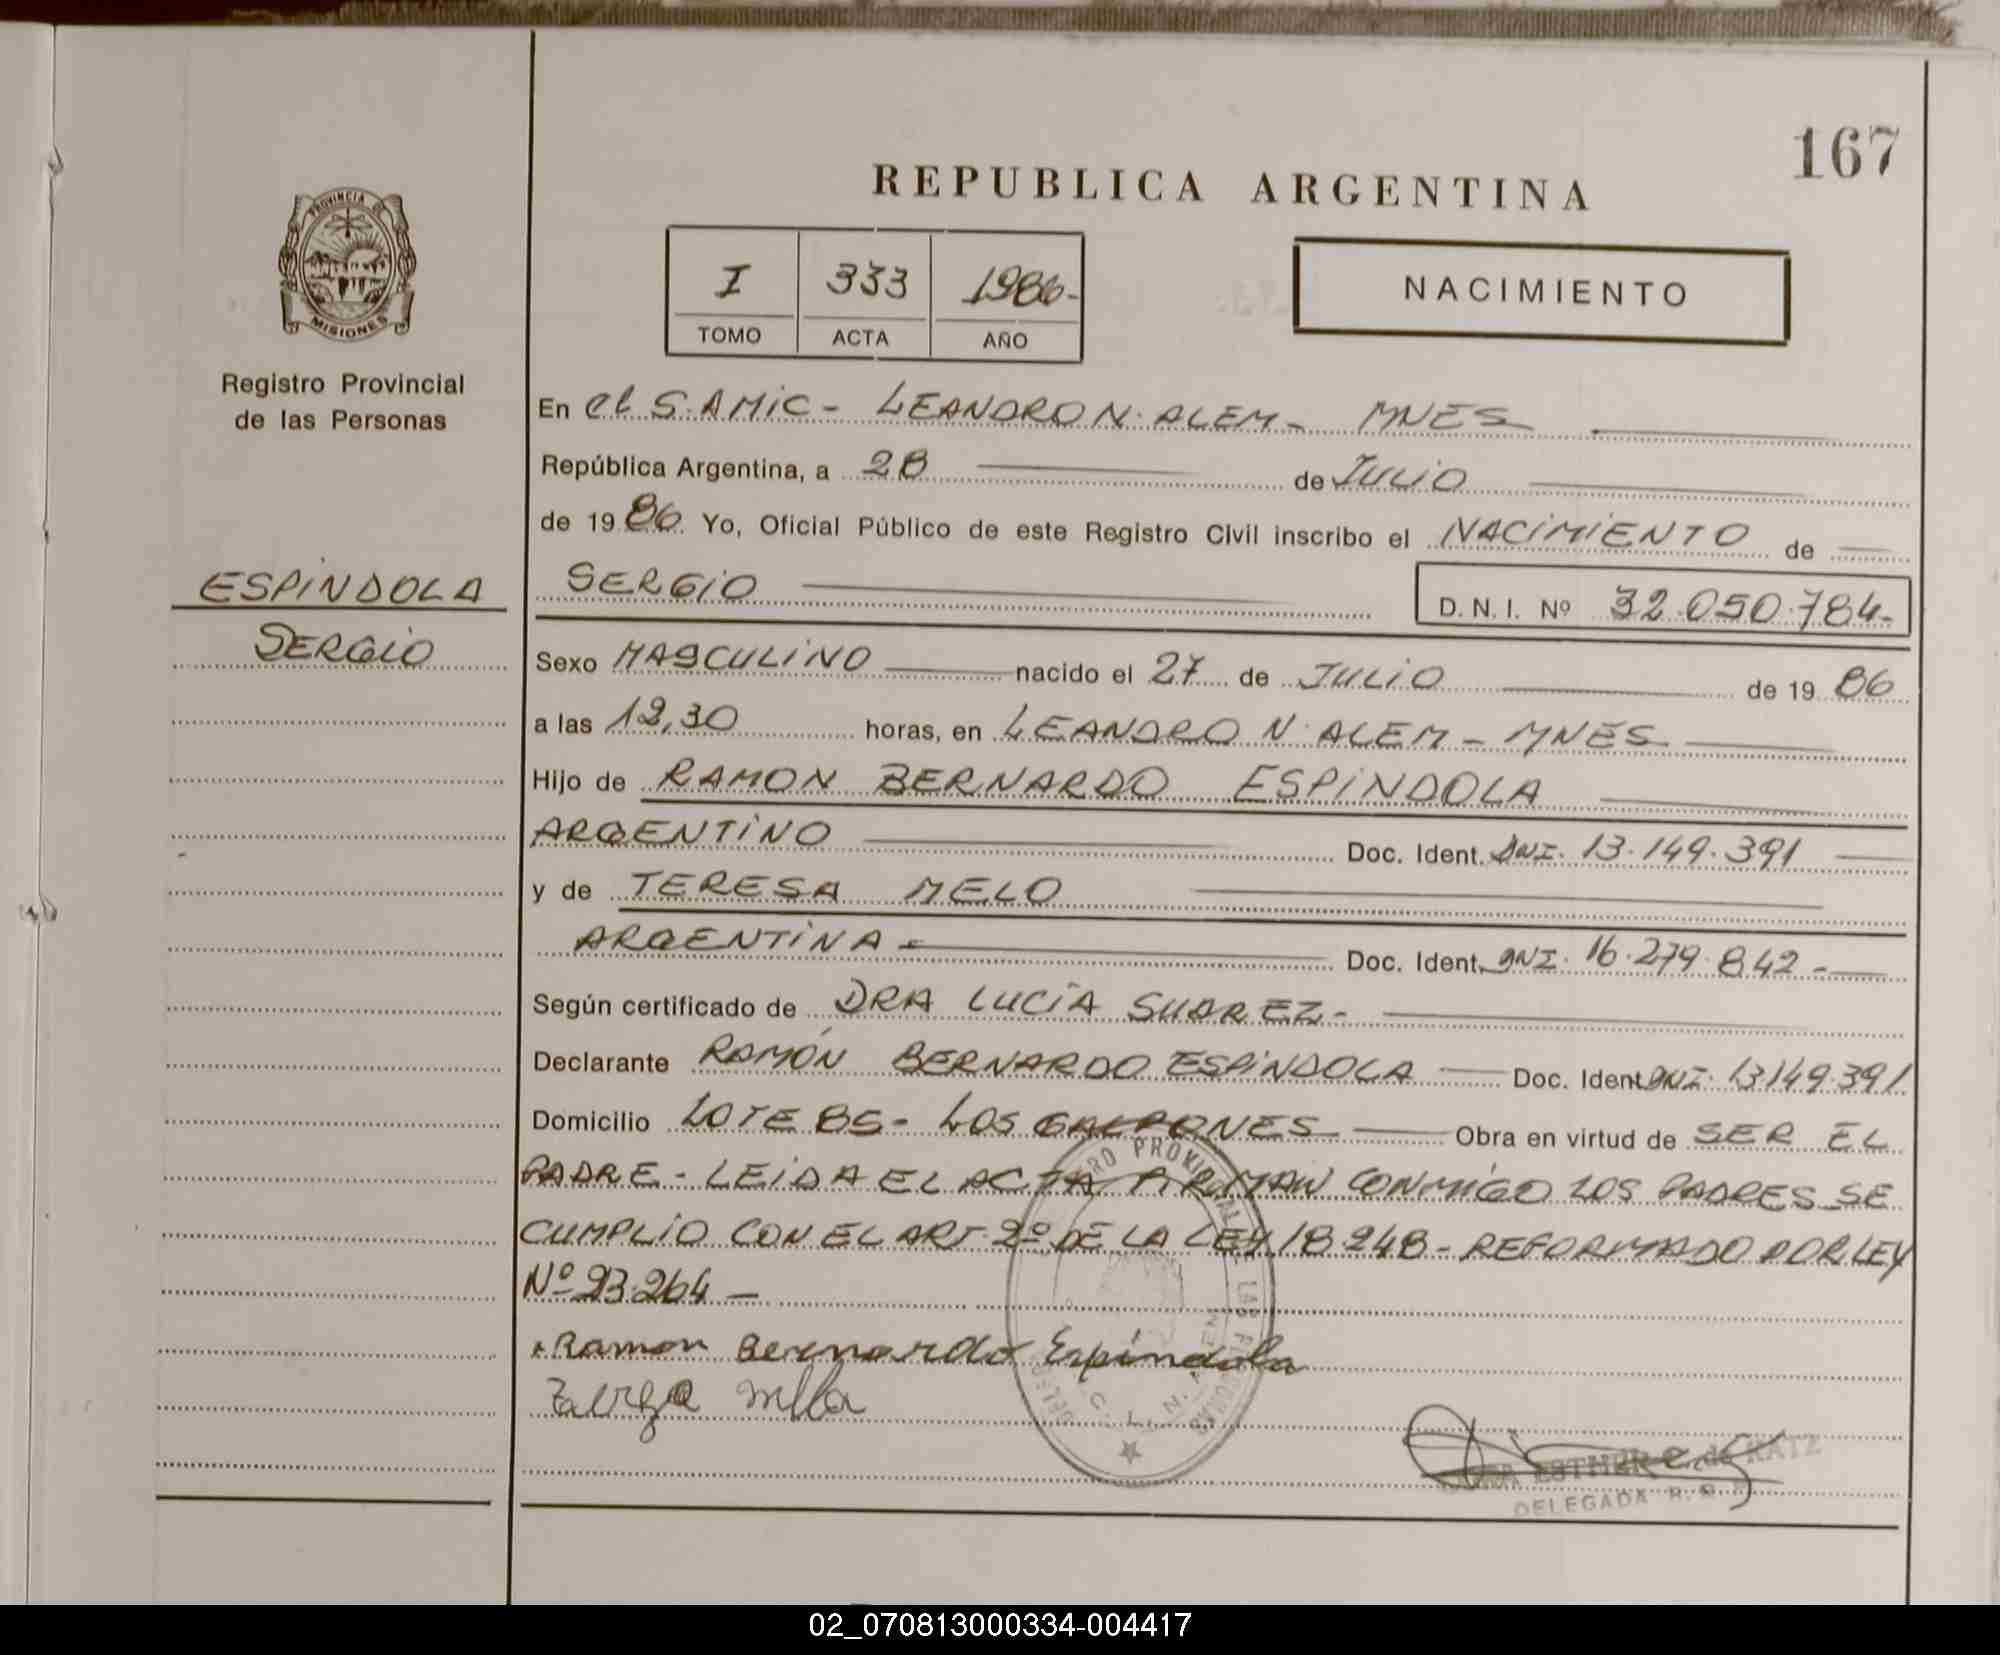 167
REPUBLICA ARGENTINA
PROVINCIA DE
MISIONES
Registro Provincial
de las Personas
I 333 1986-
TOMO ACTA AÑO
NACIMIENTO
En el S.AMIC- LEANDRO N. ALEM- MNES
República Argentina, a 28 de JULIO
de 1986 Yo, Oficial Público de este Registro Civil inscribo el NACIMIENTO de
ESPINDOLA
SERGIO
SERGIO D. N. I. Nº 32.050.784-
Sexo MASCULINO nacido el 27 de JULIO de 1986
a las 12,30 horas, en LEANDRO N. ALEM - MNES
Hijo de RAMON BERNARDO ESPINDOLA
ARGENTINO Doc. Ident. DNI. 13.149.391
y de TERESA MELO
ARGENTINA - Doc. Ident. DNI. 16.279.842-
Según certificado de DRA LUCIA SUAREZ-
Declarante RAMÓN BERNARDO ESPINDOLA Doc. Ident DNI. 13149.391
Domicilio LOTE 85- LOS GALPONES Obra en virtud de SER EL
PADRE - LEIDA EL ACTA FIRMAN CONMIGO LOS PADRES SE
CUMPLIO CON EL ART. 2º DE LA LEY 18248- REFORMADO POR LEY
Nº 23.264 -
Ramon Bernardo Espindola
ESTHER C. de KATZ
DELEGADA R.
02_070813000334-004417